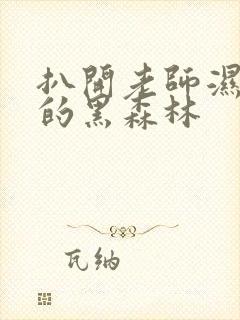 扒開老師濕
的黑森林
瓦納